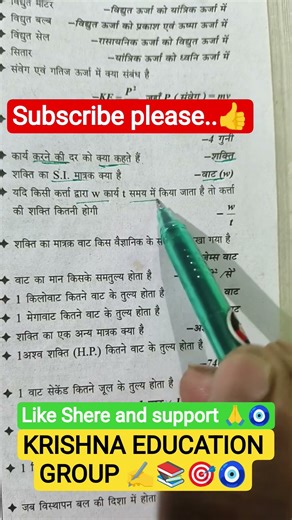 विद्युत मोटर –विद्युत ऊर्जा को यांत्रिक ऊर्जा में
विद्युत बल्ब –विद्युत ऊर्जा को प्रकाश एवं ऊष्मा ऊर्जा में
विद्युत सेल –रासायनिक ऊर्जा को विद्युत ऊर्जा में
सितार –यांत्रिक ऊर्जा को ध्वनि ऊर्जा में
संवेग एवं गतिज ऊर्जा में क्या संबंध है
–KE = P² जहाँ P (संवेग) = mv
Subscribe please..👍
–4 गुनी
कार्य करने की दर को क्या कहते हैं –शक्ति
शक्ति का S.I. मात्रक क्या है –वाट (w)
यदि किसी कर्त्ता द्वारा w कार्य t समय में किया जाता है तो कर्त्ता
की शक्ति कितनी होगी – w/t
शक्ति का मात्रक वाट किस वैज्ञानिक के गया है
वाट का मान किसके समतुल्य होता है
1 किलोवाट कितने वाट के तुल्य होता है वाट
1 मेगावाट कितने वाट के तुल्य होता है वाट
शक्ति का एक अन्य मात्रक क्या है
1 अश्व शक्ति (H.P.) कितने वाट के तुल्य होता है
1 वाट सेकेंड कितने जूल के तुल्य होता है
Like Shere and support 🙏🧿
KRISHNA EDUCATION
GROUP ✍️📚🎯🧿
जब विस्थापन बल की दिशा में होता